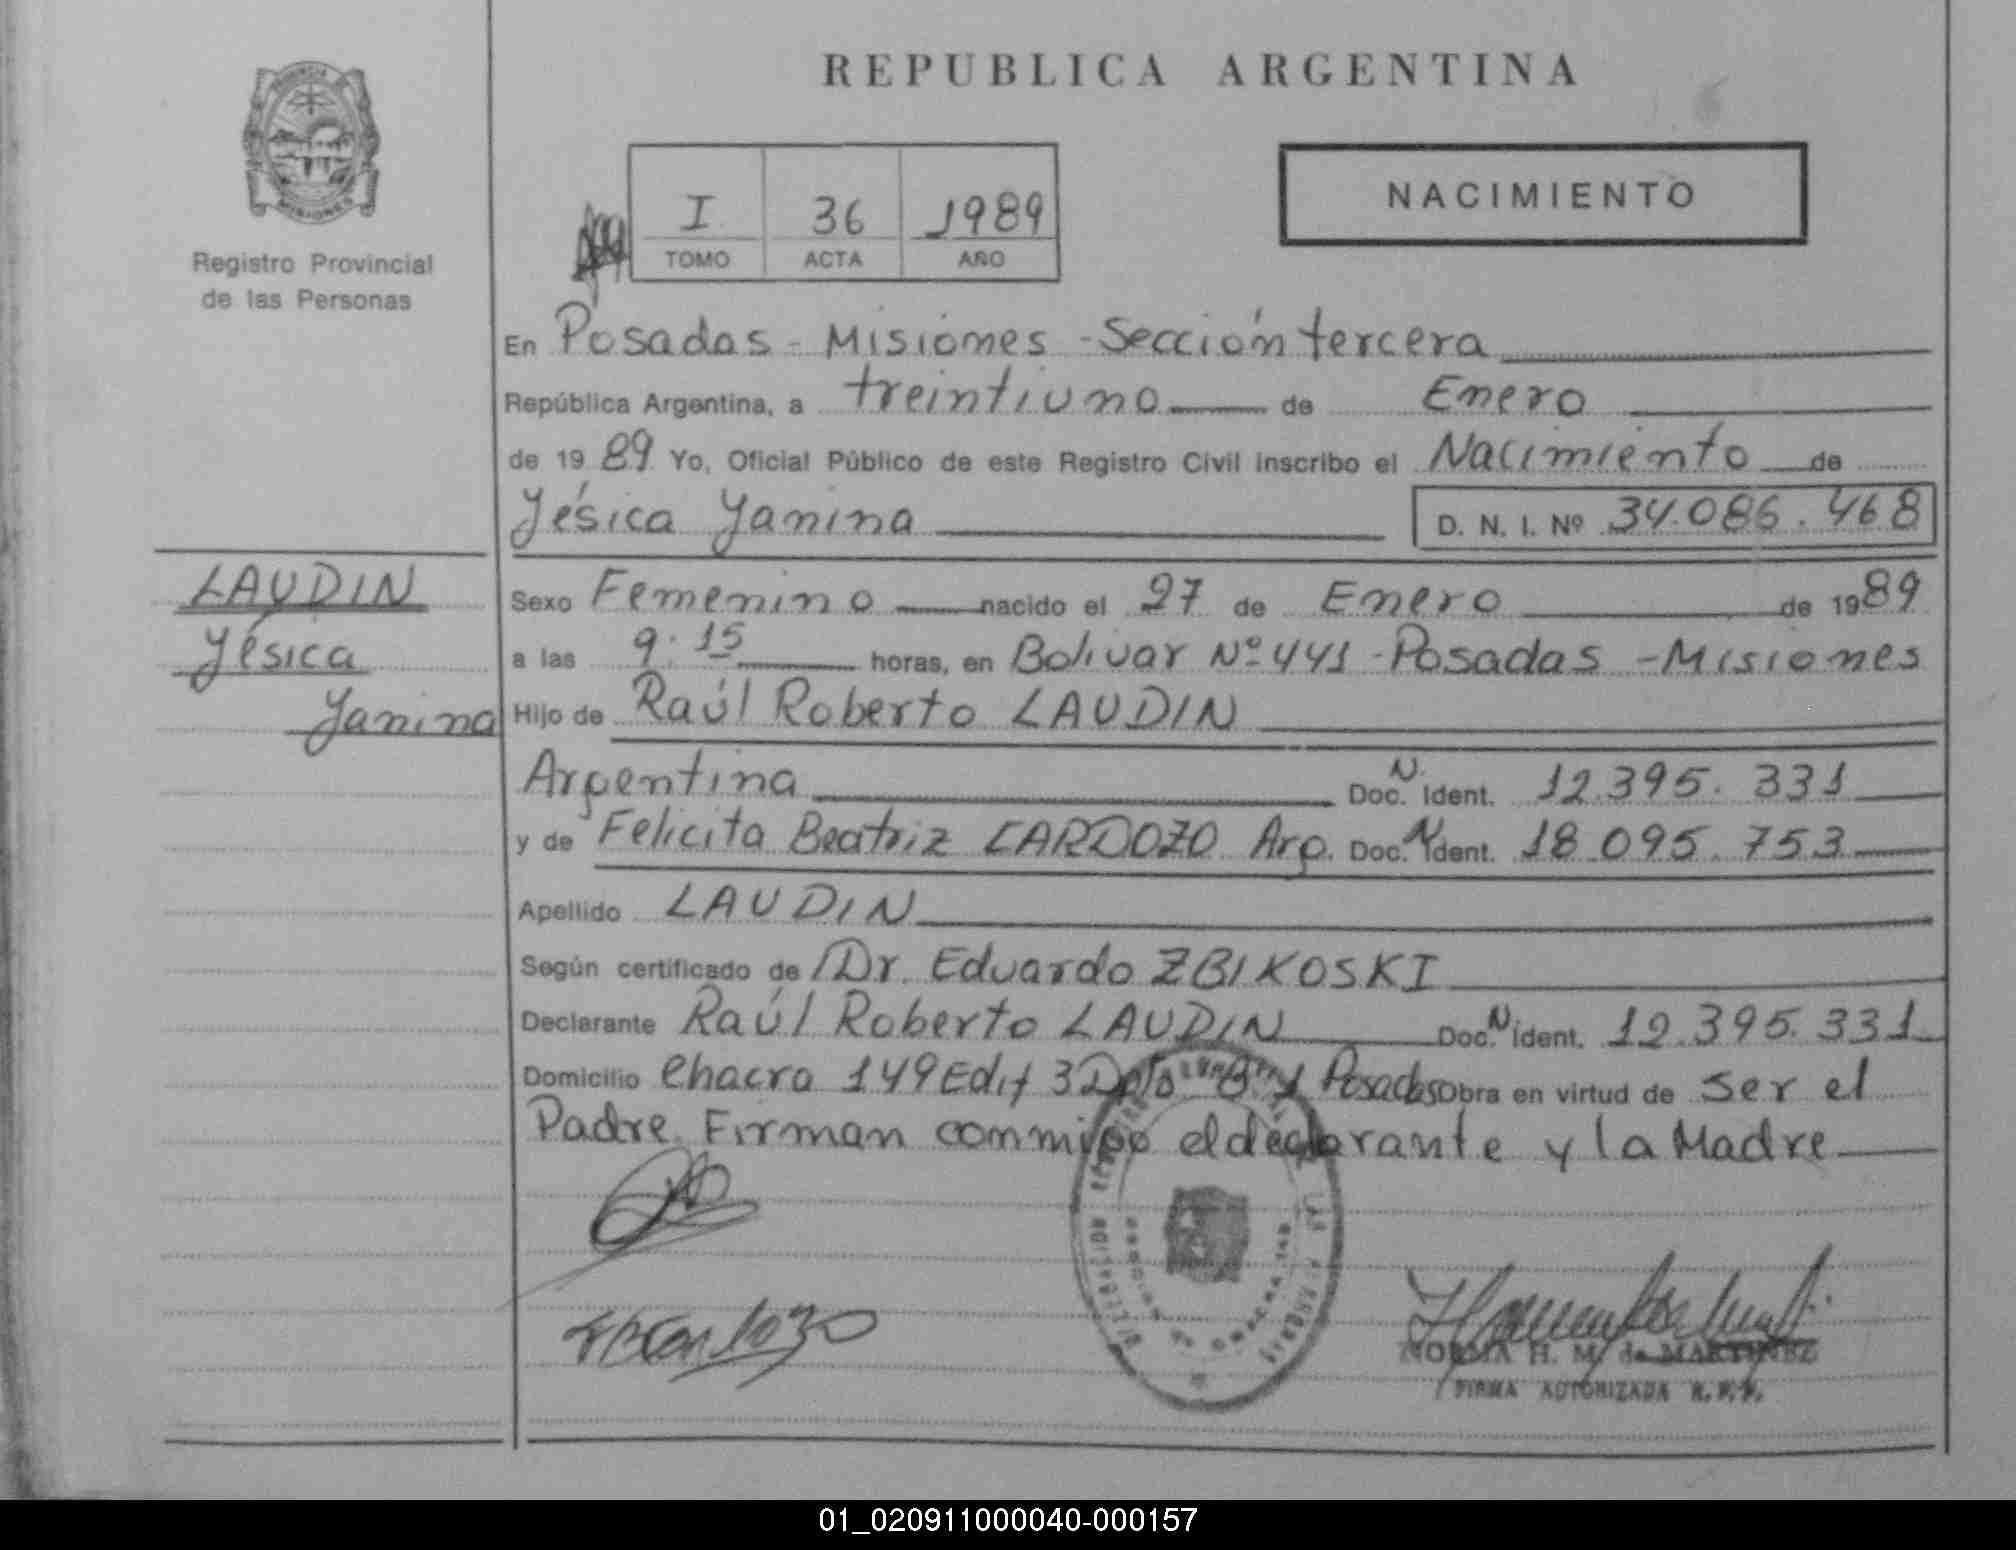 REPUBLICA ARGENTINA
PROVINCIA
MISIONES
Registro Provincial
de las Personas
I 36 1989
TOMO ACTA AÑO
NACIMIENTO
En Posadas - Misiones - Sección tercera
República Argentina, a treintiuno de Enero
de 1989 Yo, Oficial Público de este Registro Civil inscribo el Nacimiento de
Yésica Yanina D. N. I. Nº 34.086.468
LAUDIN
Yésica
Yanina
Sexo Femenino nacido el 27 de Enero de 1989
a las 9.15 horas, en Bolivar Nº 441 - Posadas - Misiones
Hijo de Raúl Roberto LAUDIN
Argentina Doc. N. Ident. 12.395.331
y de Felicita Beatriz CARDOZO Arg. Doc. N Ident. 18.095.753
Apellido LAUDIN
Según certificado de Dr. Eduardo ZBIKOSKI
Declarante Raúl Roberto LAUDIN Doc. N Ident. 12.395.331
Domicilio Chacra 149 Edif 3 Dpto Posadas Obra en virtud de ser el
Padre. Firman conmigo el declarante y la Madre
NORMA H. M. de MARTINEZ
FIRMA AUTORIZADA R.P.P.
01_020911000040-000157